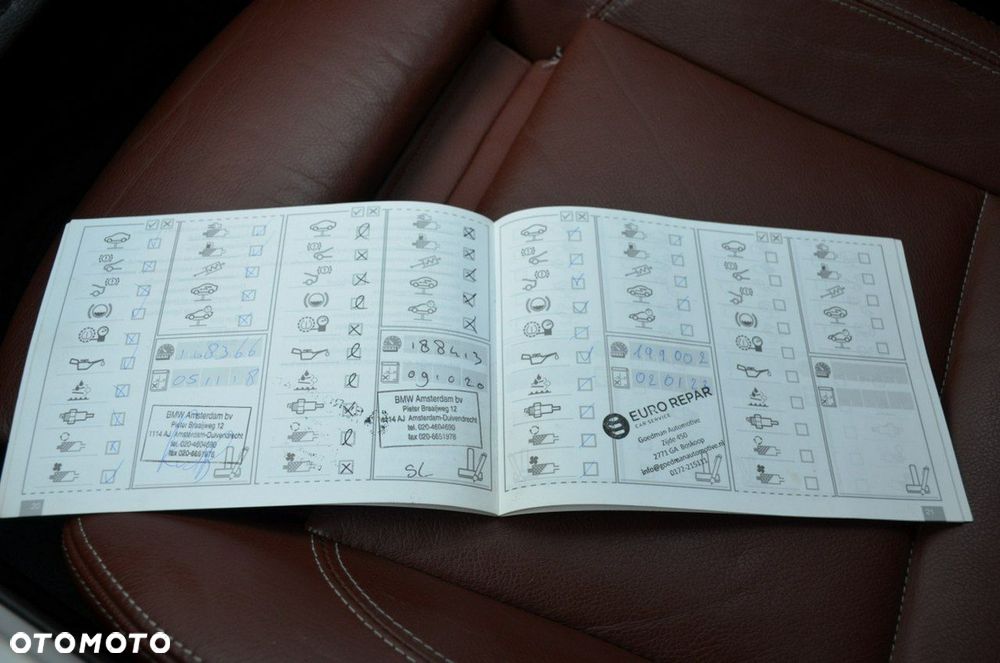 168366
051118
BMW Amsterdam bv
Pieter Braaijweg 12
1114 AJ Amsterdam-Duivendrecht
tel. 020-4604690
fax 020-6651978
20
188413
091020
BMW Amsterdam bv
Pieter Braaijweg 12
1114 AJ Amsterdam-Duivendrecht
tel. 020-4604690
fax 020-6651978
SL
199002
EURO REPAR
CAR SERVICE
Goedman Automotive
Zijde 450
2771 GA Boskoop
info@goedmanautomotive.nl
0172-215133
21
OTOMOTO